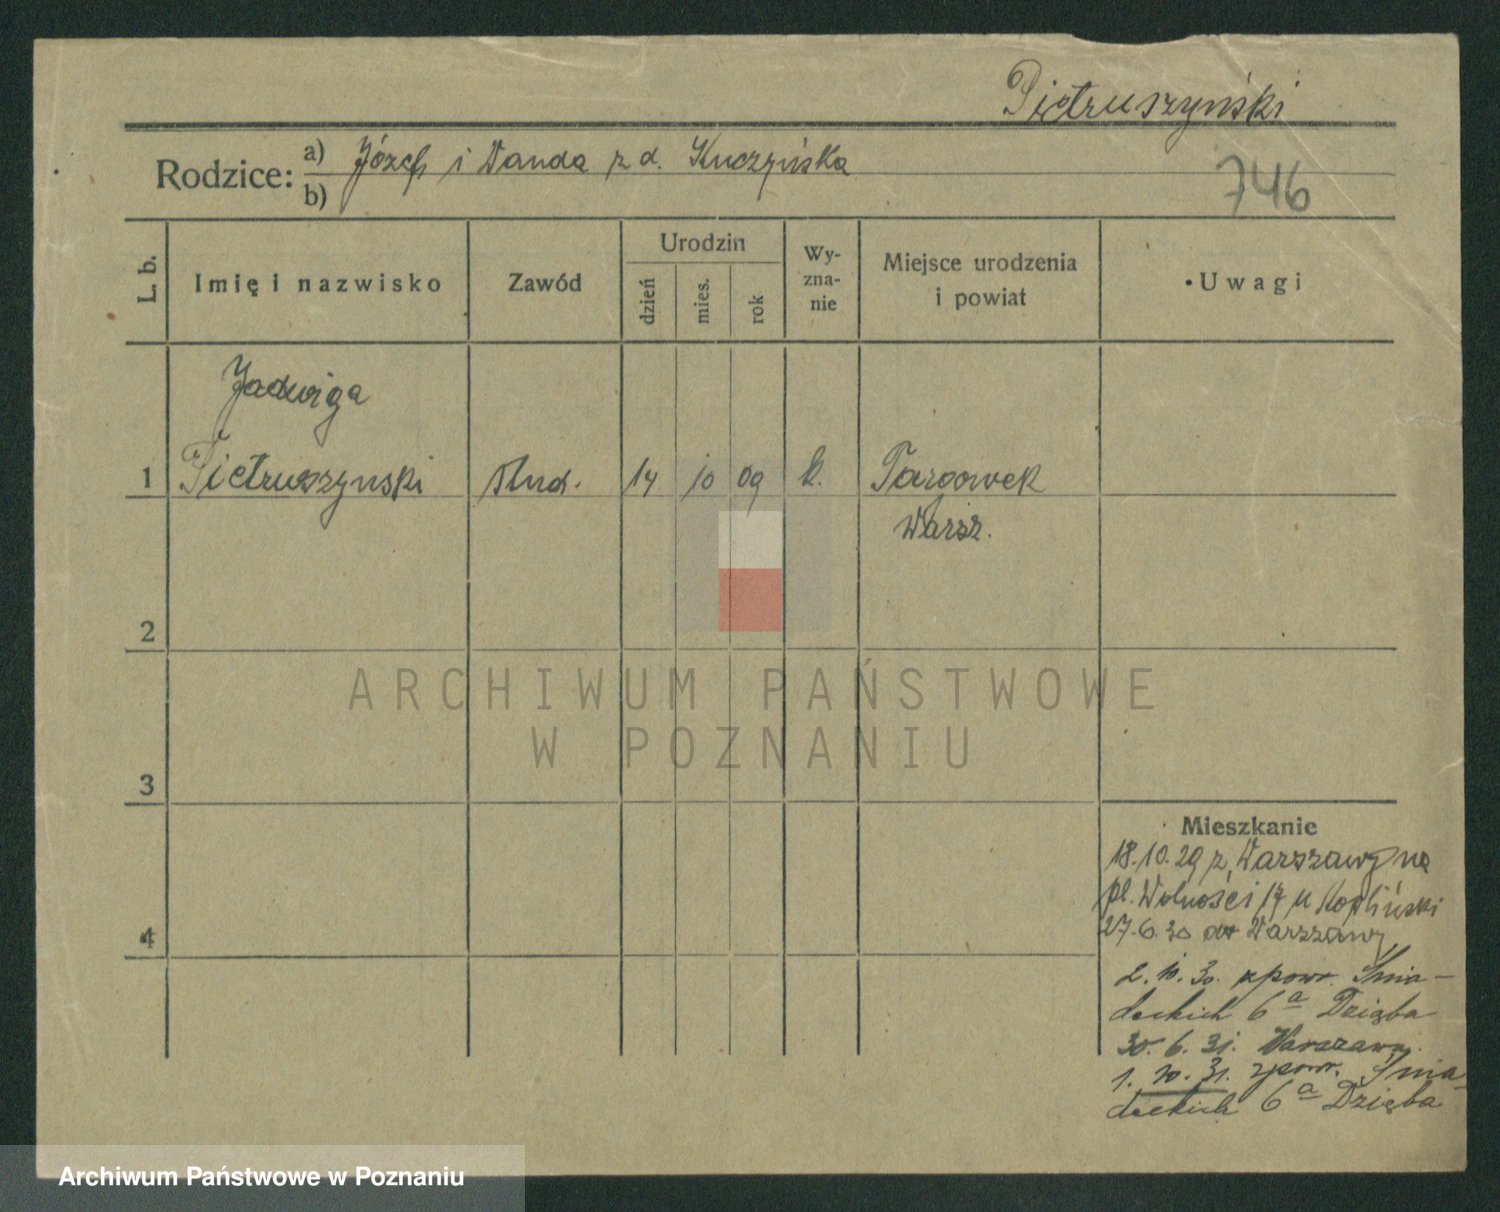 Pietruszyński
Rodzice: a) Józef i Wanda z d. Kuczyńska
b)
746
L. b.
Imię i nazwisko
Zawód
Urodzin
dzień
mies.
rok
Wy-
zna-
nie
Miejsce urodzenia
i powiat
Uwagi
Jadwiga
1 Pietruszynski stud. 14 10 09 k. Targowek
Warsz.
2
ARCHIWUM PAŃSTWOWE
W POZNANIU
3
Mieszkanie
18.10.29 z Warszawy na
pl. Wolności 17 u
27.6.30 do Warszawy
2.10.30. zpowr. Śnia-
deckich 6a Dzięba
4
30.6.31. Warszawy
1.10.31. zpowr. Śnia-
deckich 6a Dzięba
Archiwum Państwowe w Poznaniu